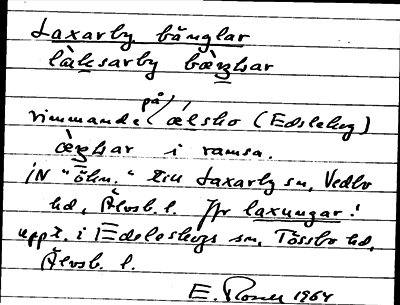 Laxarby bänglar
làksarby bæ̀ŋlar
rimmande på ælsko (Edsleskog)
æ̀ŋlar i ramsa.
IN "ökn." till Laxarby sn, Vedbo
hd, Älvsb. l. Jfr laxungar!
uppt. i Edsleskogs sn, Tössbo hd,
Älvsb. l.
E. 1964